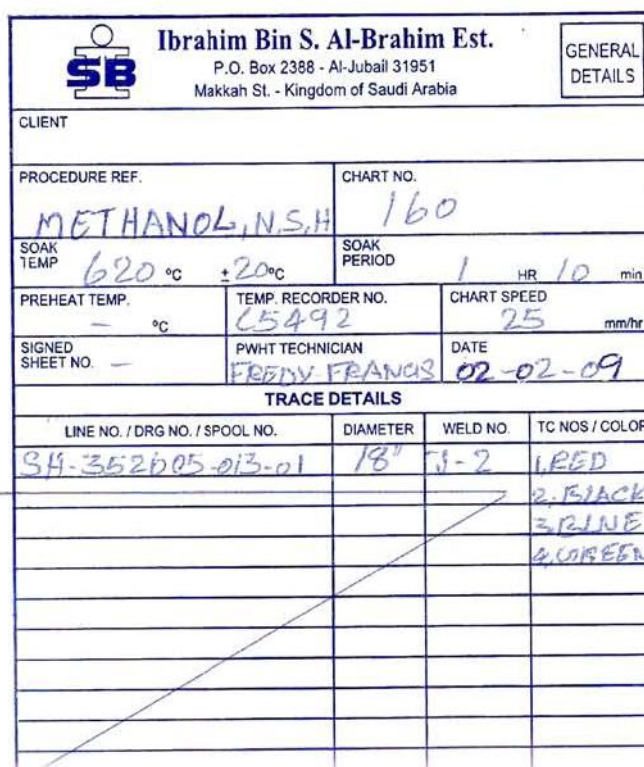 SB
Ibrahim Bin S. Al-Brahim Est.
P.O. Box 2388 - Al-Jubail 31951
Makkah St. - Kingdom of Saudi Arabia
GENERAL DETAILS
CLIENT
PROCEDURE REF.
METHANOL, N.S.H
CHART NO.
160
SOAK TEMP 620 °C ± 20°C
SOAK PERIOD 1 HR 10 min
PREHEAT TEMP. - °C
TEMP. RECORDER NO.
C5492
CHART SPEED
25 mm/hr
SIGNED SHEET NO. -
PWHT TECHNICIAN
FREDY FRANCIS
DATE
02-02-09
TRACE DETAILS
LINE NO. / DRG NO. / SPOOL NO. DIAMETER WELD NO. TC NOS / COLOR
SH-352605-013-01 18" J-2 1.RED
2.BLACK
3.BLUE
4.GREEN